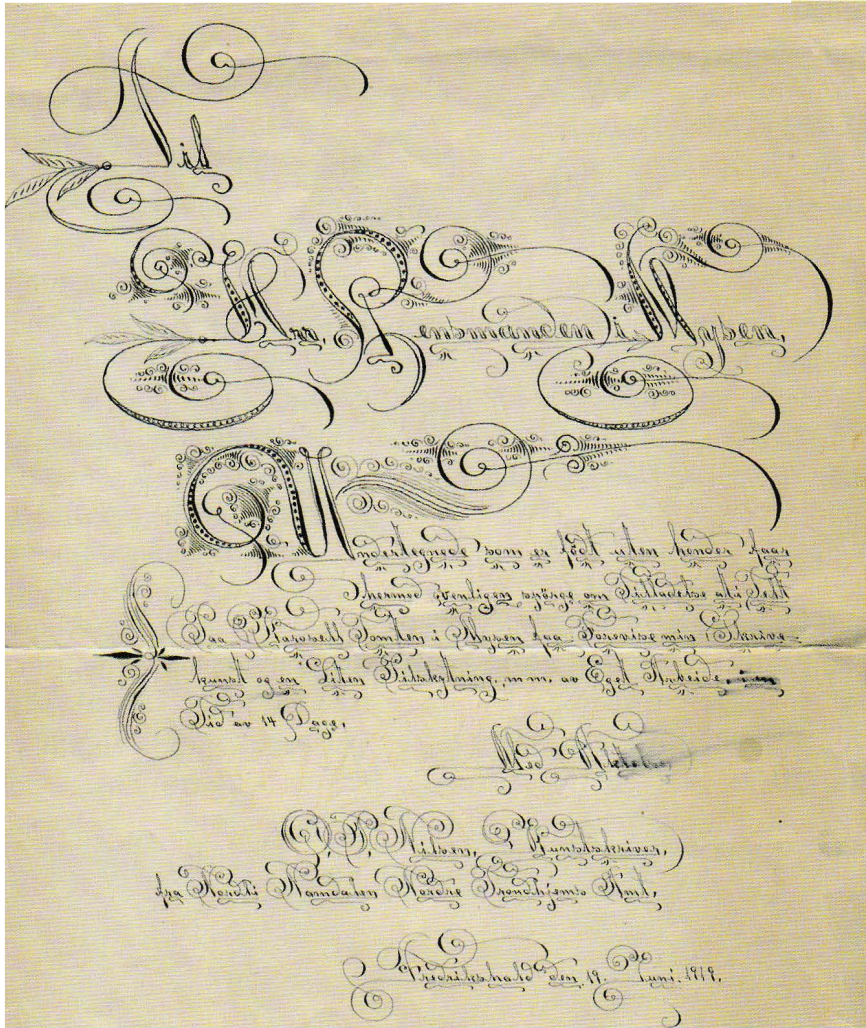 Til
Hrr. Lensmanden i Mysen,
Undertegnede som er födt uten hender faar
hermed venligen spörge om Tilladelse at i Telt
Paa Karosell Tomten i Mysen faa Forevise min Skrive-
kunst og en Liten Tilskytning, m.m. av Eget Arbeide, i en
Tid av 14 Dage.
Med
Nilsen, Kunstskriver,
fra Nordli Namdalen Nordre Trondhjems Amt,
Fredrikshald den 19. Juni. 1919.